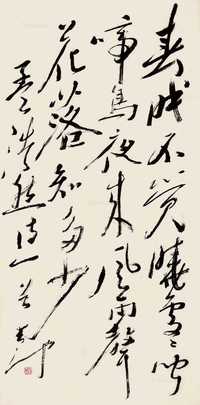 春眠不觉晓处处闻
啼鸟夜来风雨声
花落知多少
孟浩然诗一首